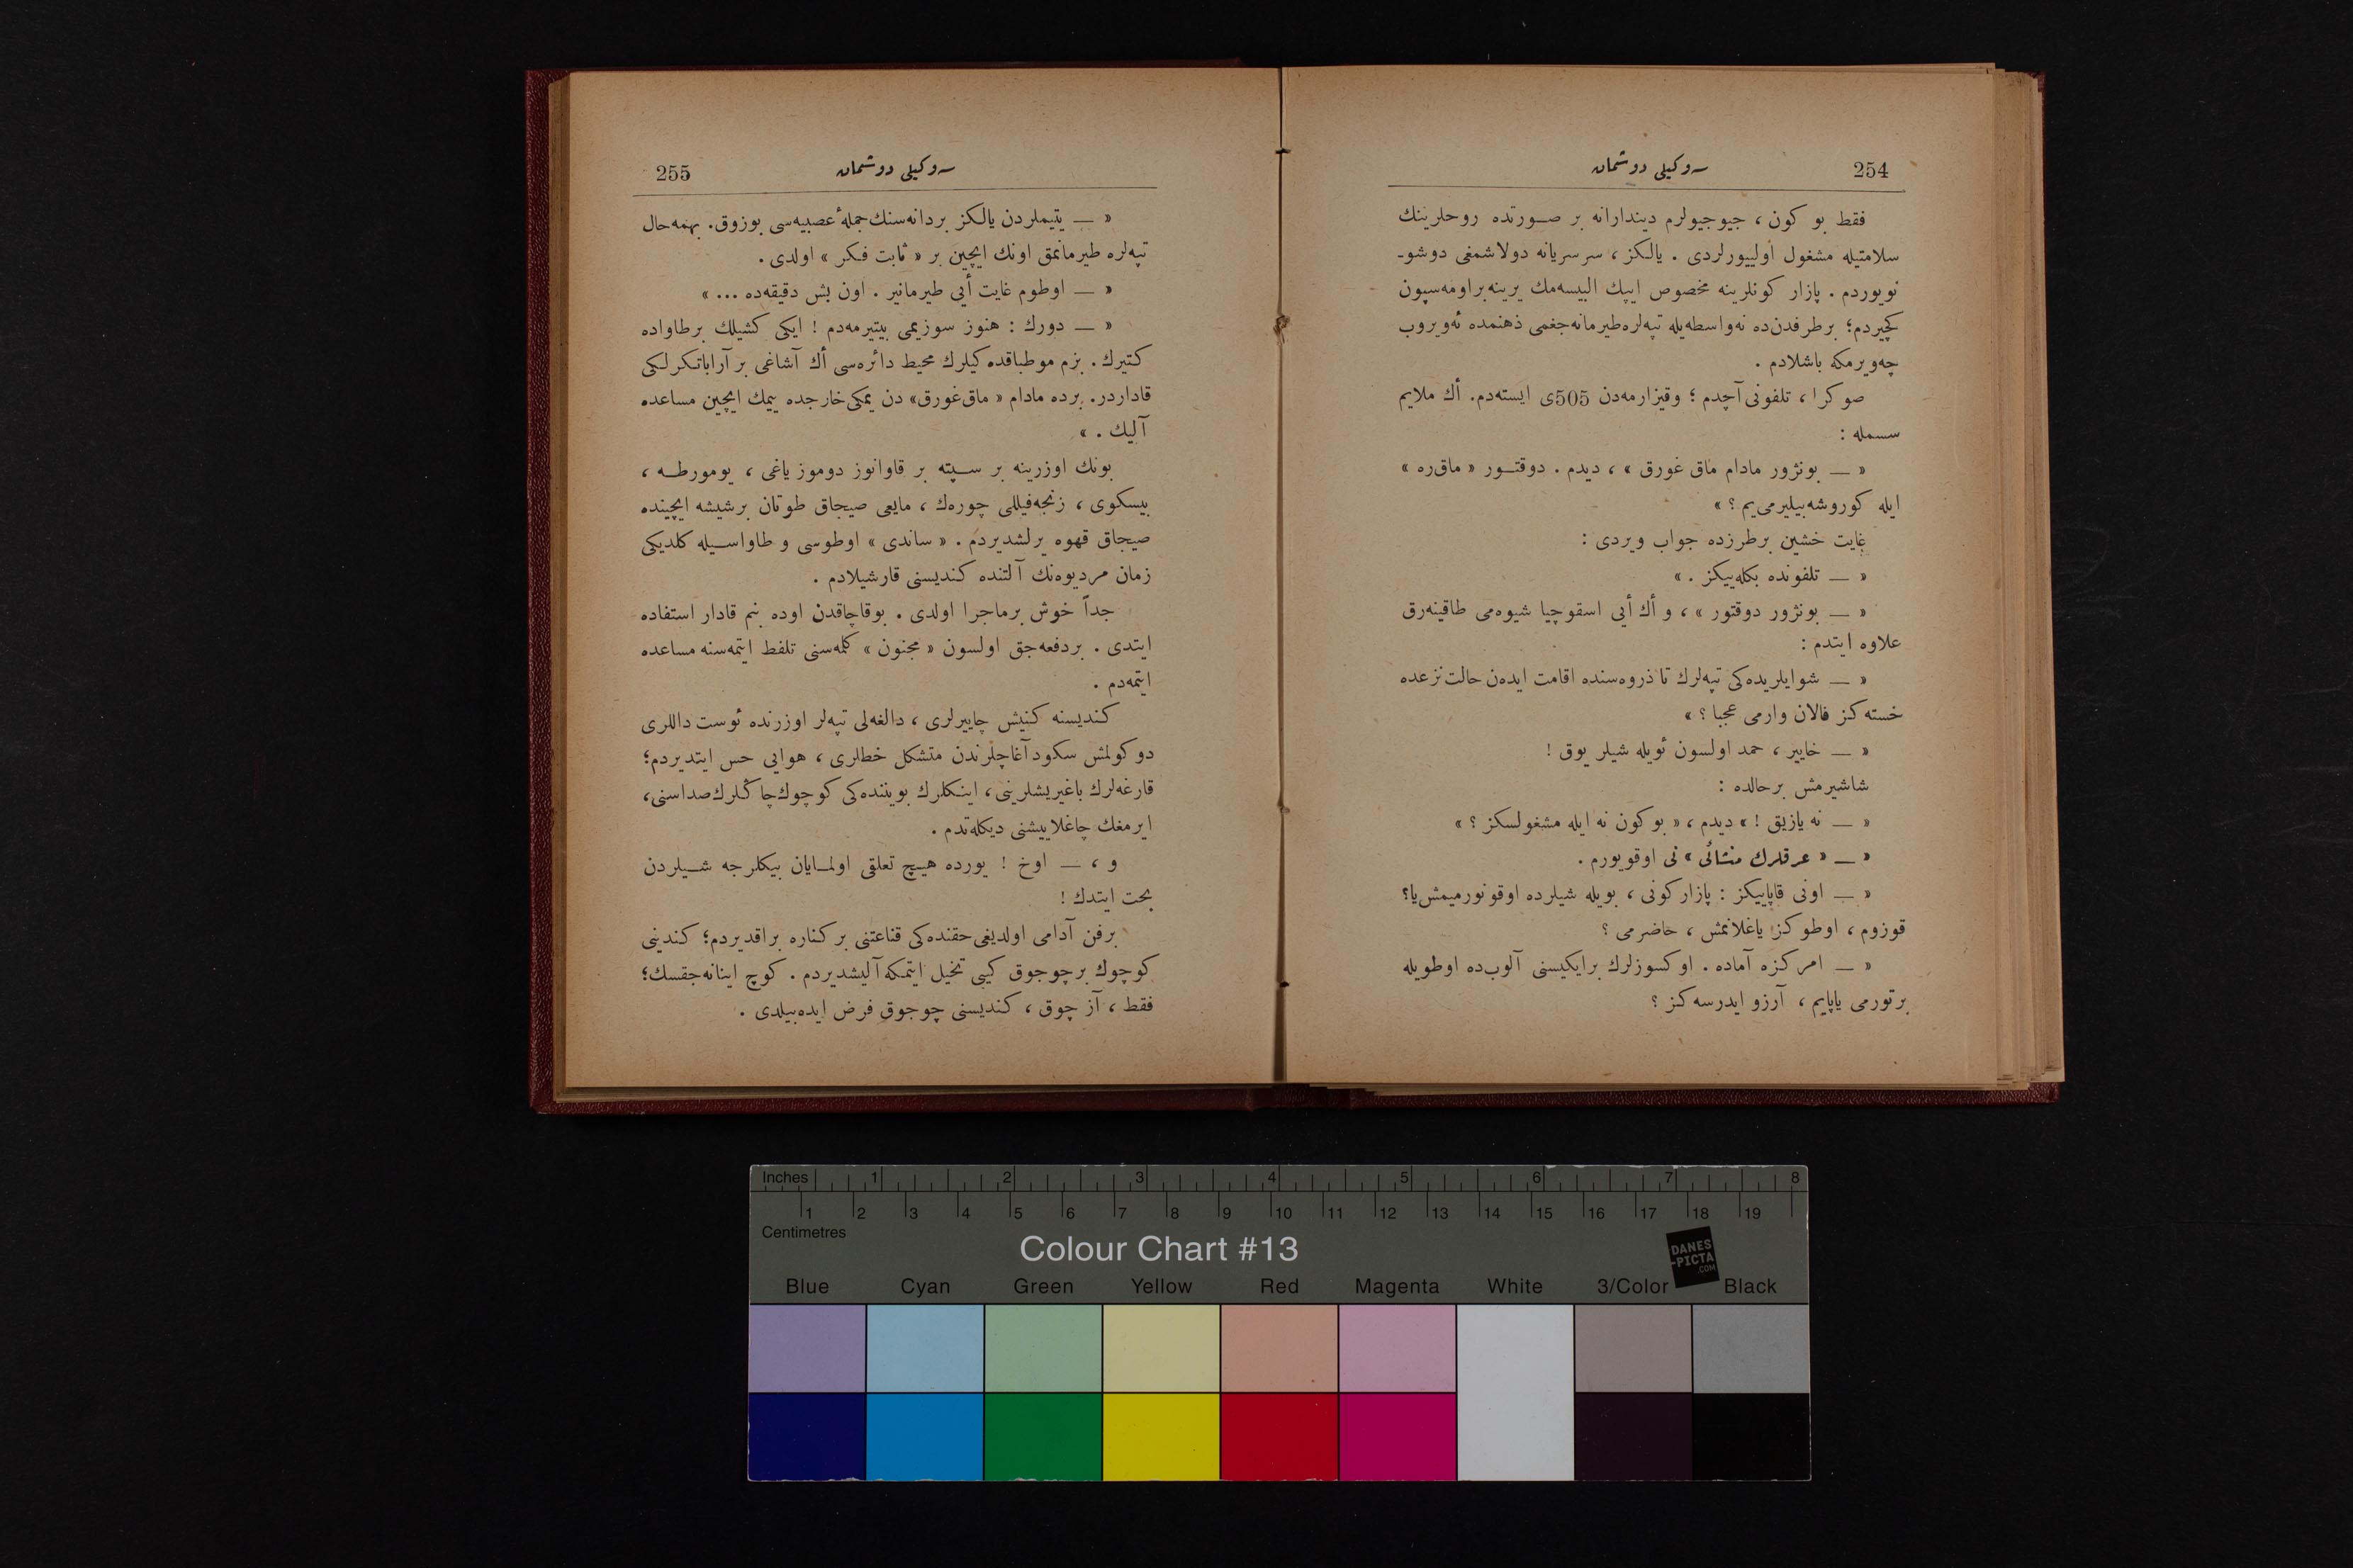 254
سه‌وكیلی دوشمان
فقط بو كون ، جیوجیولرم دیندارانه بر صورتده روحلرینك
سلامتیله مشغول اولییورلردی . یالكز ، سرسریانه دولاشمغی دوشو-
نویوردم . پازار كونلرینه مخصوص ایپك البیسه‌مك یرینه براومه‌سپون
كچیردم؛ برطرفدن‌ده نه‌واسطه‌یله تپه‌لره‌طیرمانه‌جغمی ذهنمده ئه‌ویروب
چه‌ویرمكه باشلادم .
صوكرا ، تلفونی‌آچدم ؛ وقیزارمه‌دن 505ی ایسته‌دم. أك ملایم
سسمله :
« — بونژور مادام ماق غورق » ، دیدم . دوقتور « ماق‌ره »
ایله كوروشه‌بیلیرمی‌یم ؟ »
غایت خشین برطرزده جواب ویردی :
« — تلفونده بكله‌ییكز . »
« — بونژور دوقتور » ، و أك أیی اسقوچیا شیوه‌می طاقینه‌رق
علاوه ایتدم :
« — شوایلریده‌كی تپه‌لرك تا ذروه‌سنده اقامت ایده‌ن حالت نزعده
خسته‌كز فالان وارمی عجبا ؟ »
« — خاییر ، حمد اولسون ئویله شیلر یوق !
شاشیرمش برحالده :
« — نه یازیق ! » دیدم ، « بوكون نه ایله مشغولسكز ؟ »
« — « عرقلرك منشائی » نی اوقویورم .
« — اونی قاپاییكز : پازاركونی ، بویله شیلرده اوقونورمیمش‌یا؟
قوزوم ، اوطوكز یاغلانمش ، حاضرمی ؟
« — امركزه آماده . اوكسوزلرك برایكیسنی آلوب‌ده اوطویله
برتورمی یاپایم ، آرزو ایدرسه‌كز ؟
سه‌وكیلی دوشمان
255
« — یتیملردن یالكز بردانه‌سنك‌جملۀ‌عصبیه‌سی بوزوق. بهمه‌حال
تپه‌لره طیرمانمق اونك ایچین بر « ثابت فكر » اولدی .
« — اوطوم غایت أیی طیرمانیر . اون بش دقیقه‌ده ... »
« — دورك : هنوز سوزیمی بیتیرمه‌دم ! ایكی كشیلك برطاواده
كتیرك . بزم موطباقده‌كیلرك محیط دائره‌سی أك آشاغی بر آراباتكرلكی
قاداردر. برده مادام « ماق‌غورق» دن یمكی‌خارجده ییمك ایچین مساعده
آلیك . »
بونك اوزرینه بر سپته بر قاوانوز دوموز یاغی ، یومورطه ،
بیسكوی ، زنجه‌فیللی چوره‌ك ، مایعی صیجاق طوتان برشیشه ایچینده
صیجاق قهوه یرلشدیردم . « ساندی » اوطوسی و طاواسیله كلدیكی
زمان مردیوه‌نك آلتنده كندیسنی قارشیلادم .
جداً خوش برماجرا اولدی . بوقاچاقدن اوده بنم قادار استفاده
ایتدی . بردفعه‌جق اولسون « مجنون » كلمه‌سنی تلفظ ایتمه‌سنه مساعده
ایتمه‌دم .
كندیسنه كنیش چاییرلری ، دالغه‌لی تپه‌لر اوزرنده ئوست داللری
دوكولمش سكود آغاچلرندن متشكل خطلری ، هوایی حس ایتدیردم؛
قارغه‌لرك باغیریشلرینی ، اینكلرك بویننده‌كی كوچوك‌چاكلرك‌صداسنی،
ایرمغك چاغلاییشنی دیكله‌تدم .
و ، — اوخ ! یورده هیچ تعلقی اولمایان بیكلرجه شیلردن
بحث ایتدك !
برفن آدامی اولدیغی‌حقنده‌كی قناعتنی بركناره براقدیردم؛ كندینی
كوچوك برچوجوق كیبی تخیل ایتمكه آلیشدیردم . كوچ اینانه‌جقسك؛
فقط ، آز چوق ، كندیسنی چوجوق فرض ایده‌بیلدی .
Inches 1 2 3 4 5 6 7 8
1 2 3 4 5 6 7 8 9 10 11 12 13 14 15 16 17 18 19
Centimetres
Colour Chart #13
DANES
-PICTA
.COM
Blue Cyan Green Yellow Red Magenta White 3/Color Black